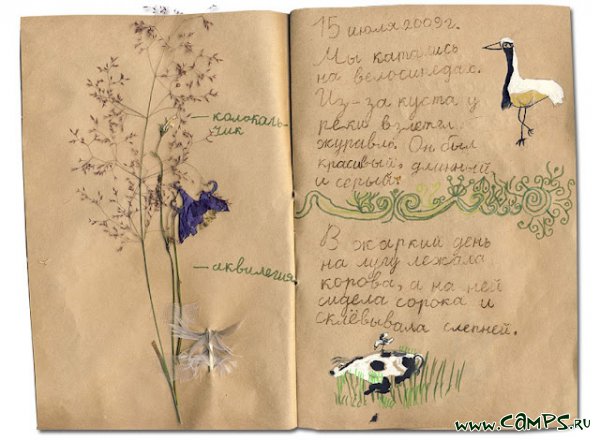 колоколь-
чик
аквилегия
15 июля 2009г.
Мы катались
на велосипедах.
Из-за куста у
реки взлетел
журавль. Он был
красивый, длинный
и серый.
В жаркий день
на лугу лежала
корова, а на ней
сидела сорока и
склёвывала слепней.
www.CAMPS.RU